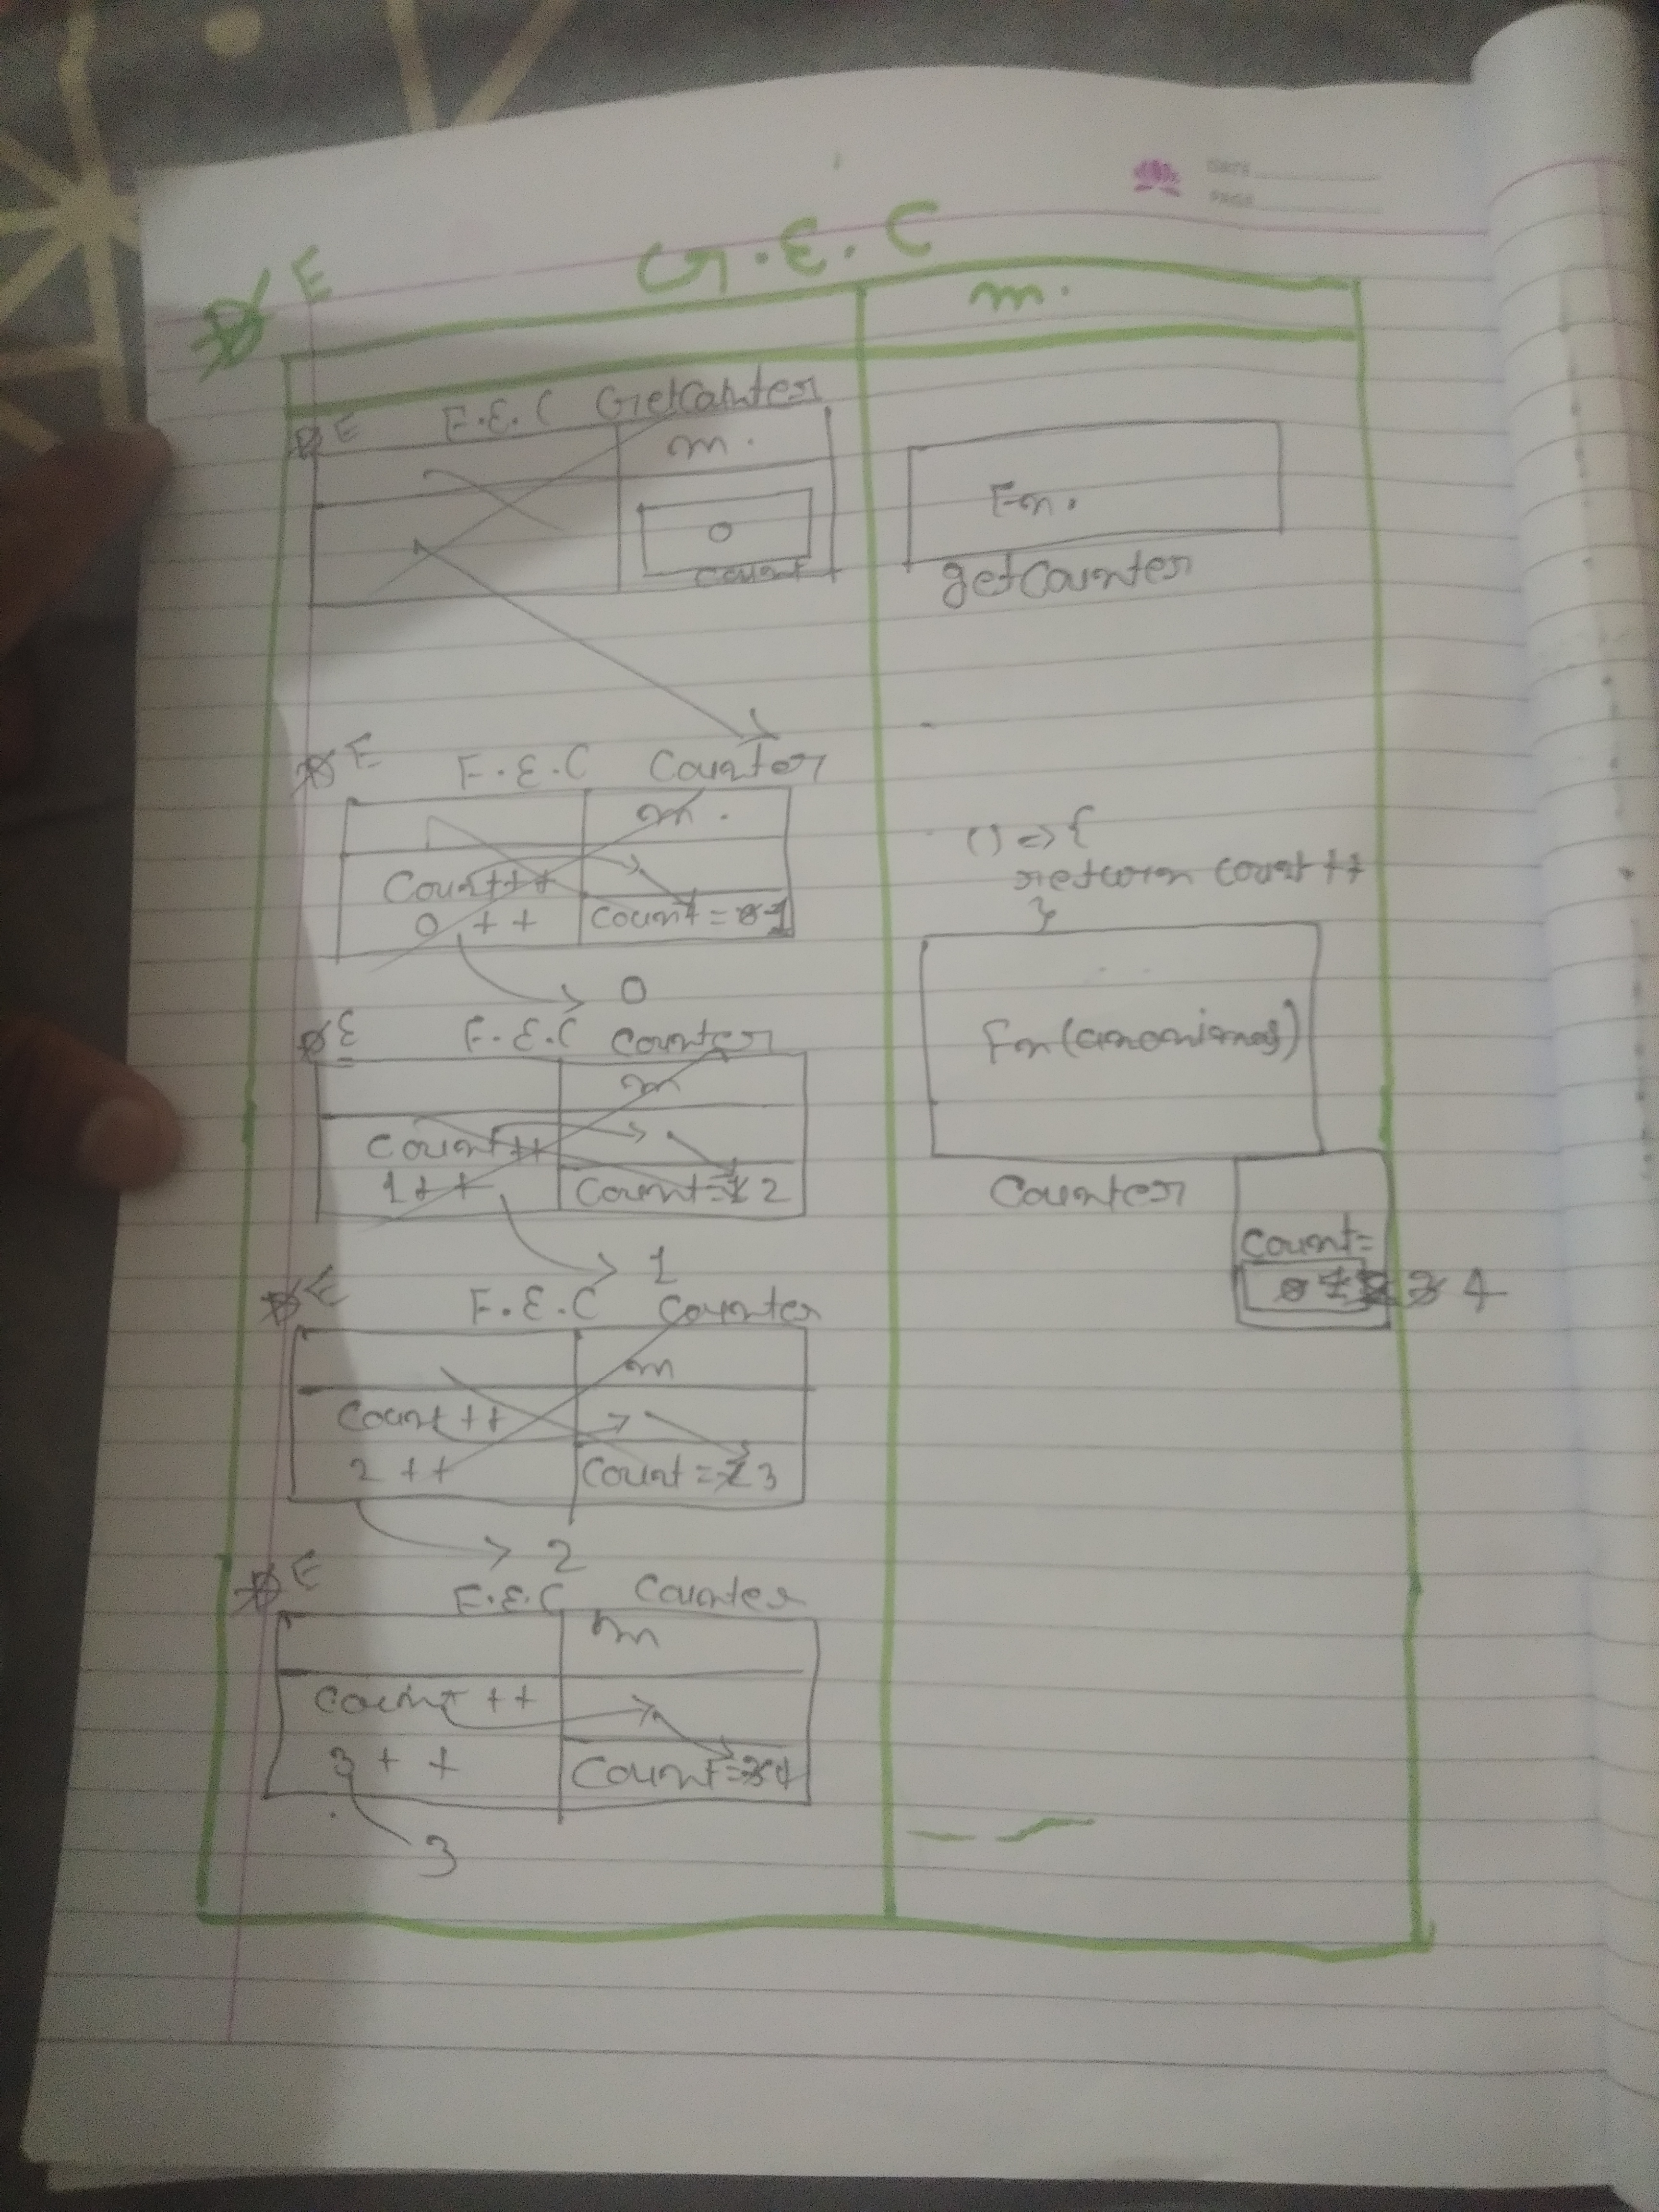 DATE
PAGE
G.E.C
D E
m.
D E F.E.C GetCounter
m.
0
count
Fn.
getCounter
D E F.E.C Counter
m.
Count++
0 ++
Count = 0 1
0
() => {
return count ++
}
Fn (anonimas)
Counter
Count =
0 1 2 3 4
D E F.E.C Counter
m
Count++
1++
Count = 1 2
1
D E F.E.C Counter
m
Count ++
2 ++
Count = 2 3
2
D E F.E.C Counter
m
Count ++
3 + +
Count = 3 4
3